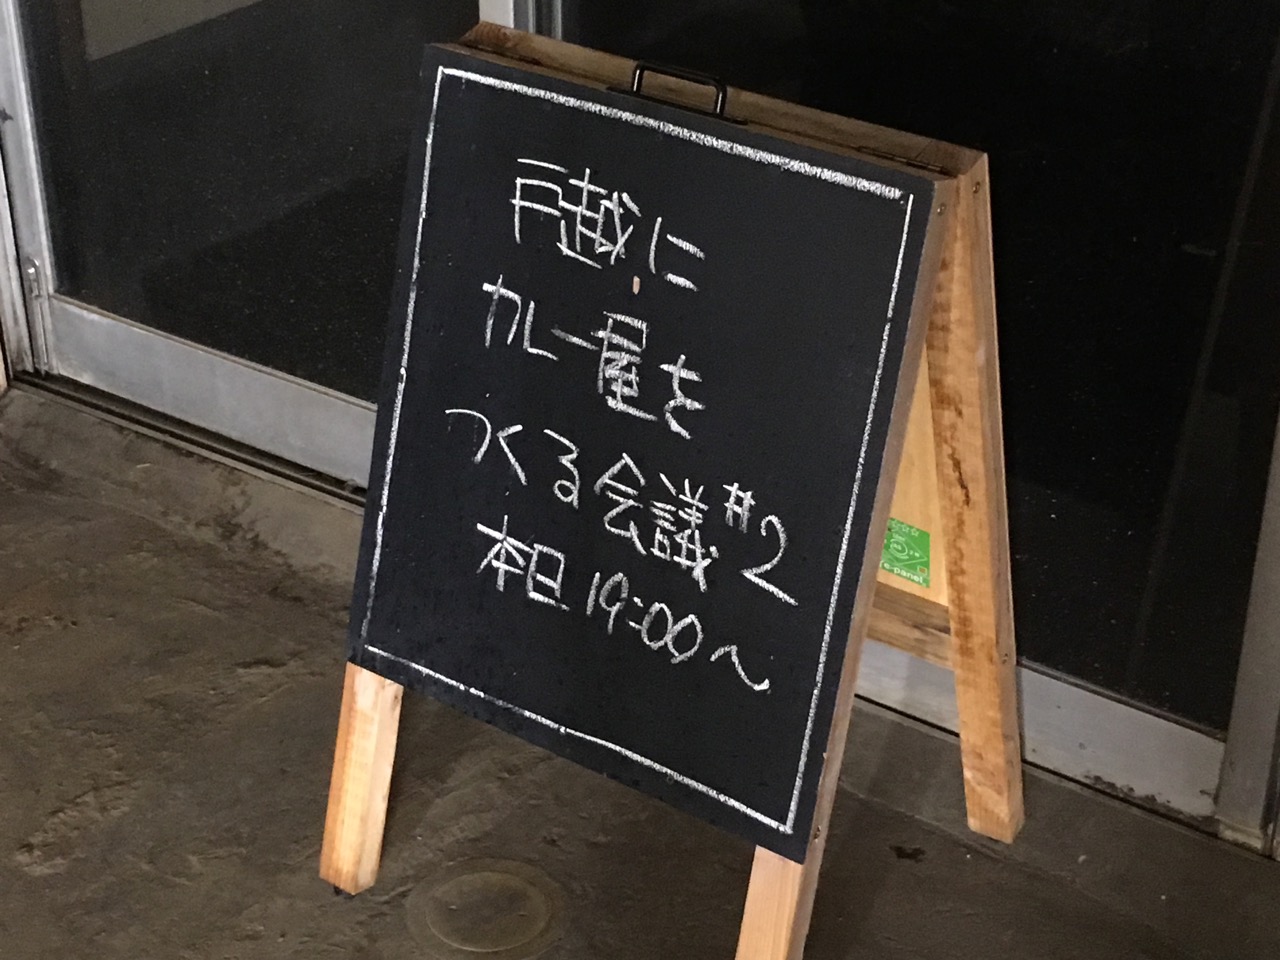 戸越に
カレー屋を
つくる会議#2
本日 19:00〜
e-panel